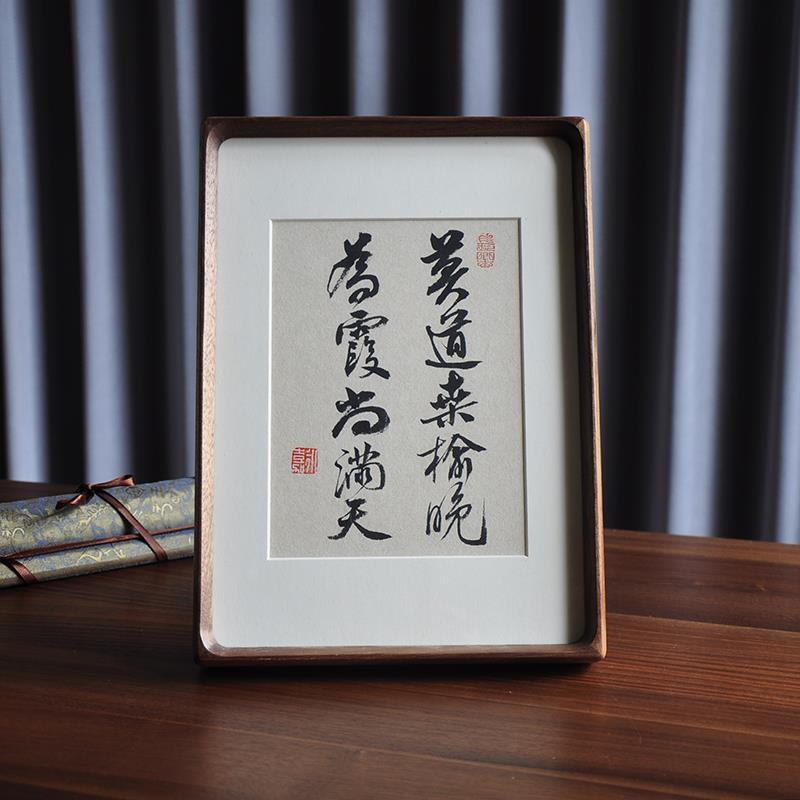 莫道桑榆晚
為霞尚滿天